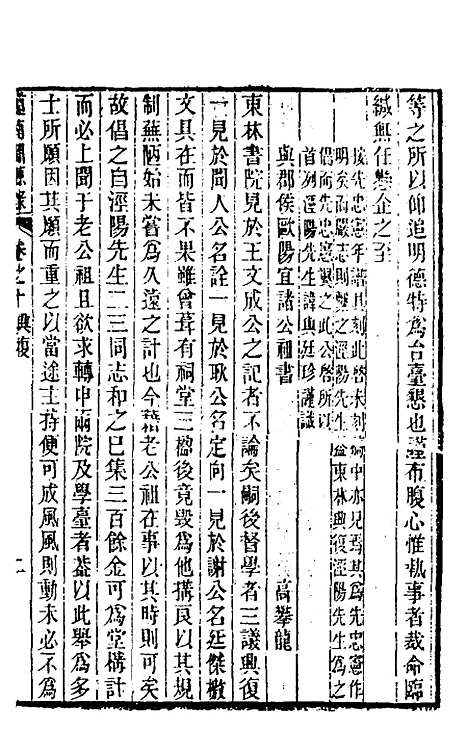 等之所以仰追明德特爲台臺懇也謹布腹心惟執事者裁命臨
緘無任懸企之至
按先忠憲年譜其刻此啓未刻稿中亦見焉其爲先忠憲作
明矣而嚴志則繫之涇陽先生蓋東林興復涇陽先生爲之
倡而先忠憲寔襄之此公啓所以
首列涇陽先生諱與廷珍謹識
與郡侯歐陽宜諸公祖書
高攀龍
東林書院見於王文成公之記者不論矣嗣後督學者三議興復
一見於聞人公名詮一見於耿公名定向一見於謝公名廷傑檄
文具在而皆不果雖曾葺有祠堂三楹後竟毀爲他搆良以其規
制蕪陋始未嘗爲久遠之計也今藉老公祖在事以其時則可矣
故倡之自涇陽先生二三同志和之已集三百餘金可爲堂構計
而必上聞于老公祖且欲求轉申兩院及學臺者葢以此舉爲多
士所願因其願而重之以當途主持便可成風風則動未必不爲
卷之十 興復
二